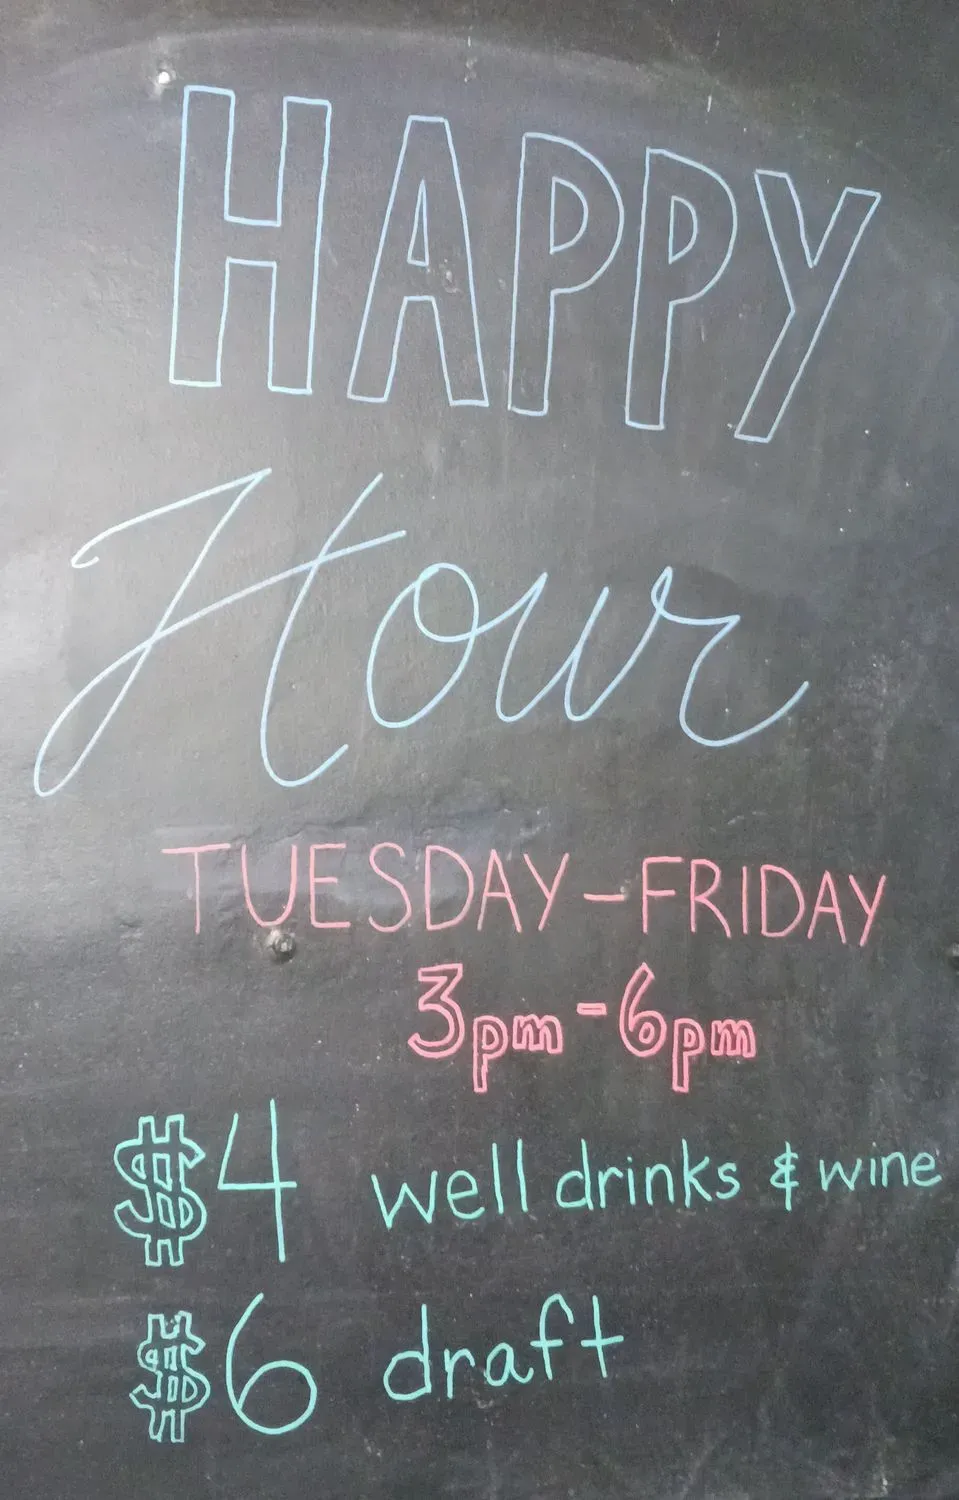 HAPPY
Hour
TUESDAY-FRIDAY
3pm-6pm
$4 well drinks & wine
$6 draft